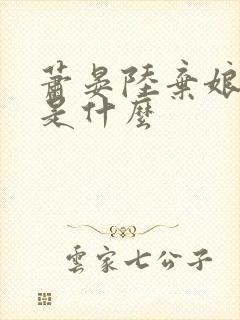 蕭晏陸棄娘
是什麼
雲家七公子